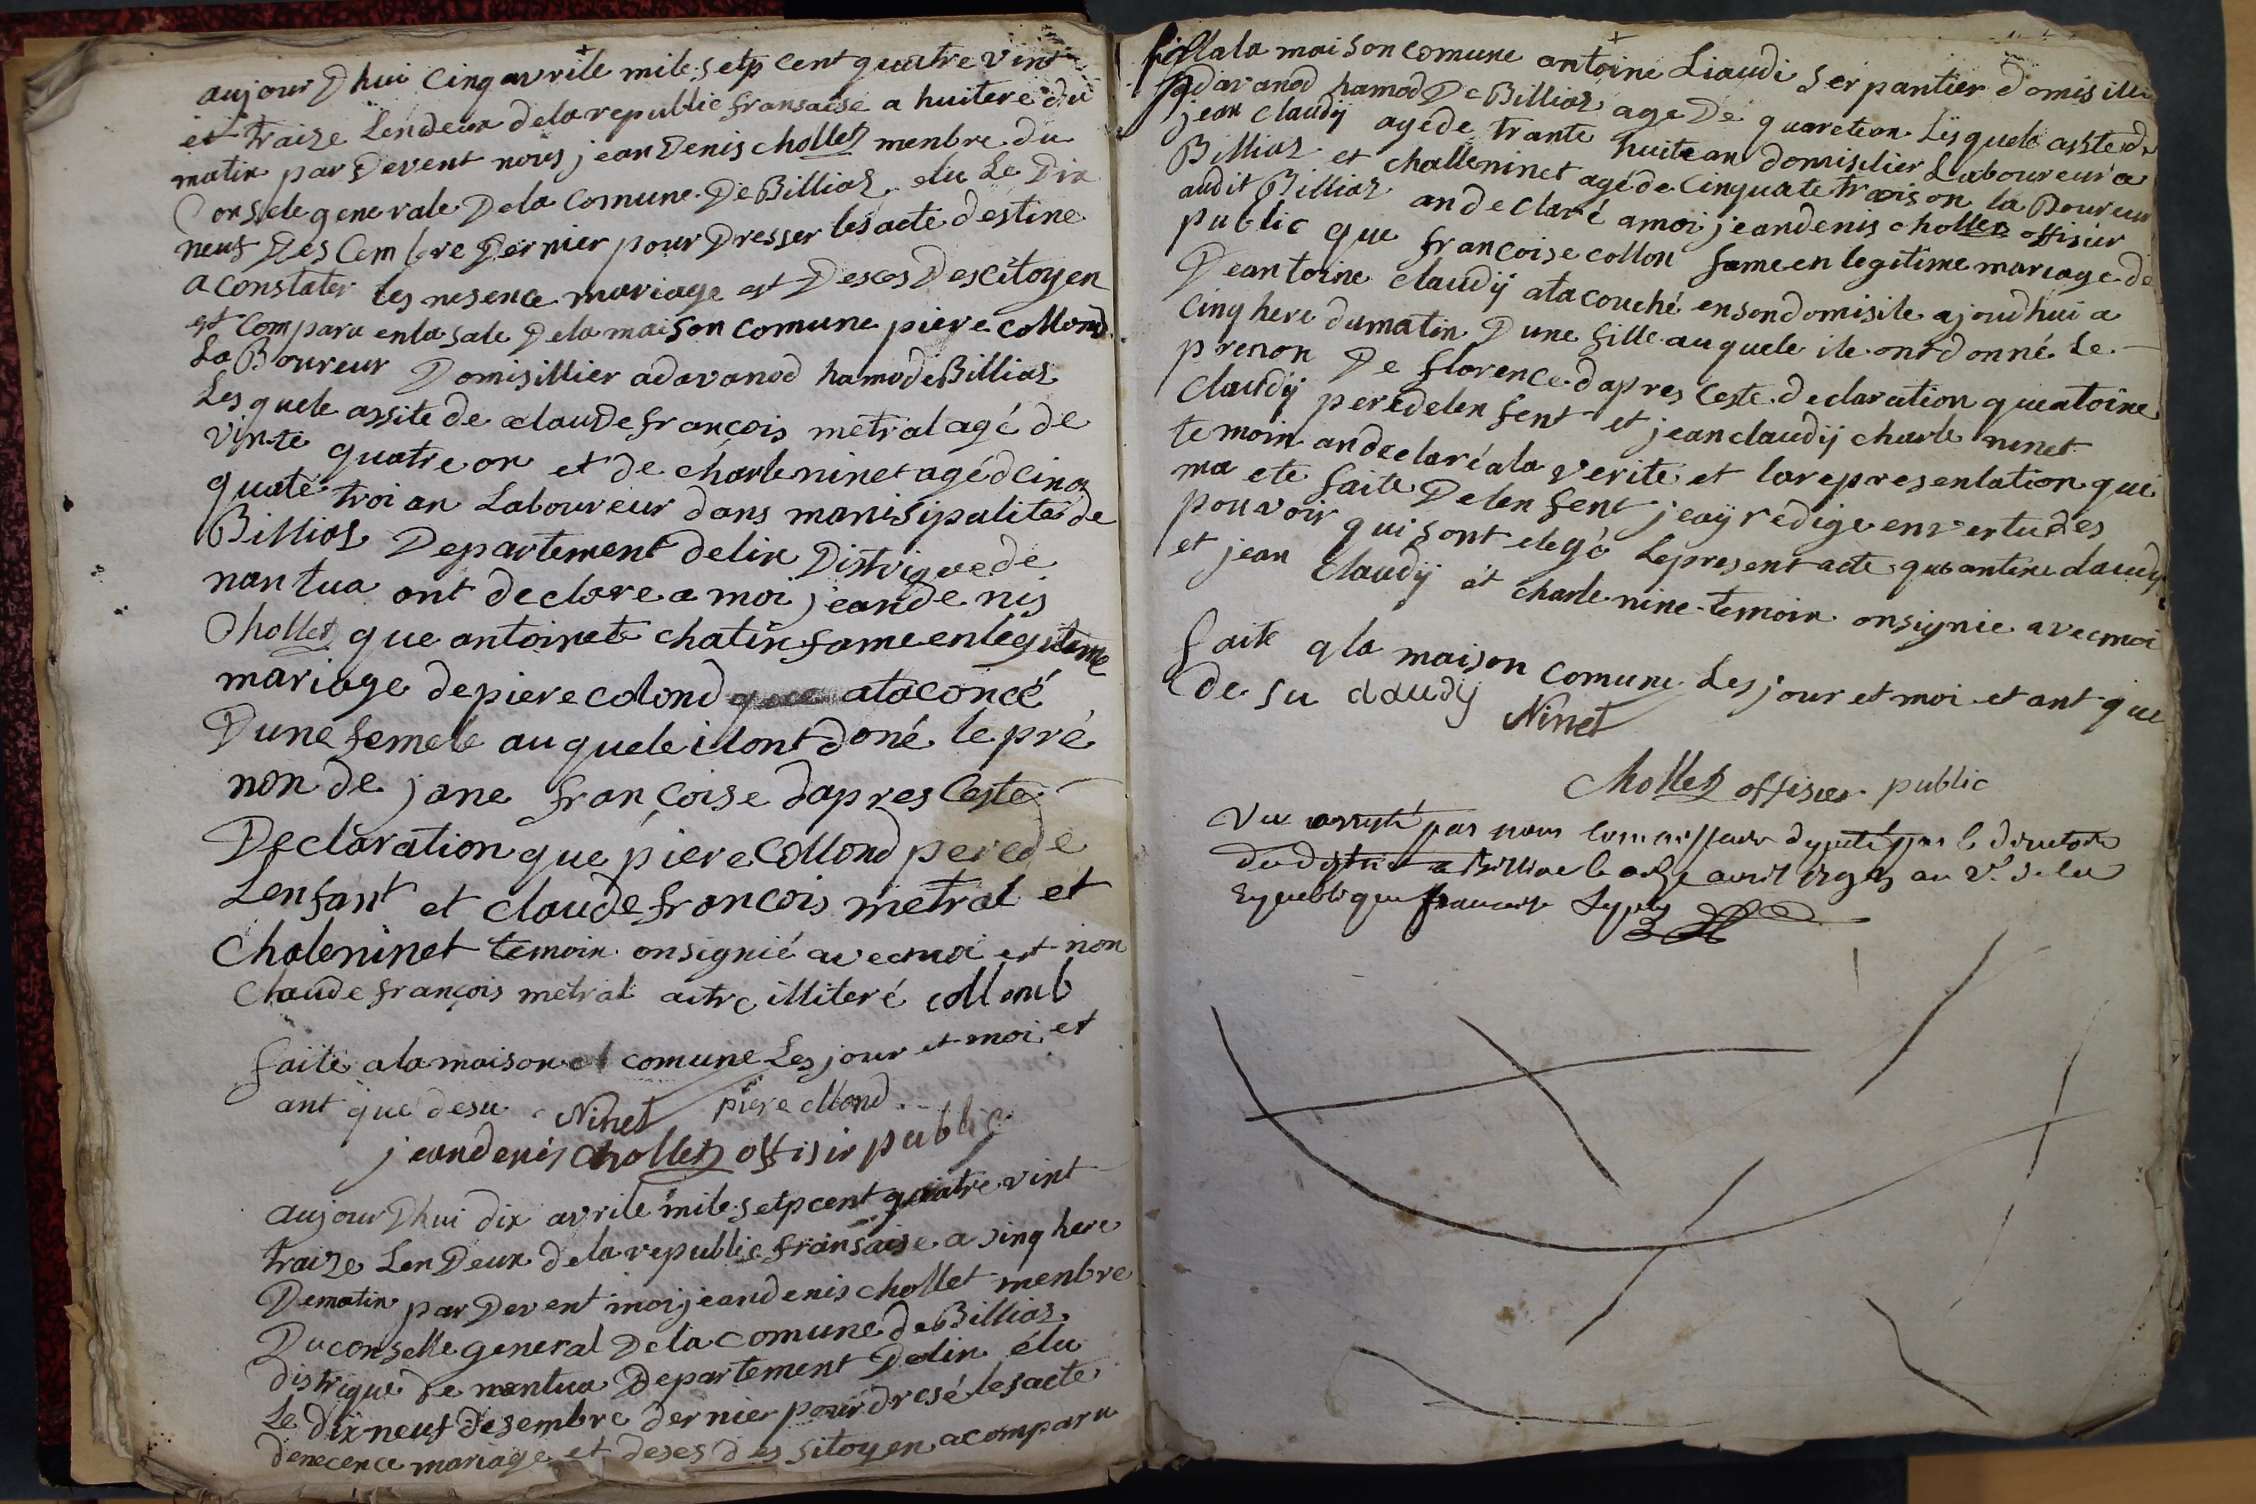 aujour Dhui Cinq avrile mile setp cent quatre vint
et traize Lendeux delarepublic fransaise a huitere du
matin par Devent nous jean Denis chollet menbre du
Consele generale Dela Comune De Billiaz elu Le Dix
neuf Des Cembre Dernier pour Dresser les acte destine
a constater les nesence mariage et Desces Des citoyen
est Comparu enla sale Dela maison comune piere collond
LaBoureur Domisillier adavanod hamode Billiaz
Lesquele assite de claude françois metral agé de
vinte quatre an et de charle ninet agé dcinq
quate troi an Laboureur dans manisipalité de
Billiaz Departement delin Distrique de
nantua ont declare a moi jeandenis
Chollet que antoinete chatin fame enlegitime
mariage depiere colond atacouцé
Dune femele auquele ilont doné le pré
non de jane françoise dapres Ceste
Declaration que piere Collond perede
Lenfant et claude francois metral et
chaleninet temoin onsignié avecmoi et non
Claude françois metral aitre illiteré collomb
faite ala maison comune Les jour et moi et
ant que desu Ninet piere ollond
jeandenis chollet offisir public
aujour Dhui dix avrile mile setpcent quatre vint
traize Len Deux de larepublic fransaise a sinq here
Dematin par Devent moi jeandenis chollet menbre
Du conselle general Dela comune de Billiaz
distrique De nantua Departement Delin élu
Le dix neuf desembre dernier pour dresé les acte
denecence mariage et deses des sitoyen acomparu
ala maison comune antoine Liaudi serpantier domisilie
adavanod hamod De Billiaz age De quarete an Lesquele assite de
jean Claudÿ agéde trante huitean domisilier Laboureur a
Billiaz et challeninet agéde Cinquate trois on laBoureur
audit Billiaz andeclaré amoi jeandenis chollet offisier
public que françoise collon fame en legitime mariage de
Deantoine claudÿ atacouché ensondomisile ajoudhui a
cinq here dumatin Dune fille auquele ile ont donné Le
prenon De florence dapres Ceste declaration queatoine
Claudÿ peredelenfent et jeanclaudÿ charle ninet
temoin andeclaré ala verite et larepresentation qui
ma ete faite Delenfent jeaÿ redige envertu des
pouvoir quisont elegé Lepresent acte que antine claudÿ
et jean Claudÿ et charle nine temoin onsignie avecmoi
faite a la maison Comune Les jour et moi et ant que
de su claudÿ Ninet
chollet offisier public
Vu arresté par nous Commissaire deputé par le directoire
du district a Billiac le onze avril 1793 an 2e de la
Republique française